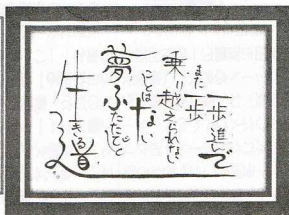 一歩進んで
また一歩
乗り越えられない
ことはない
夢ふたたびと
生きる道